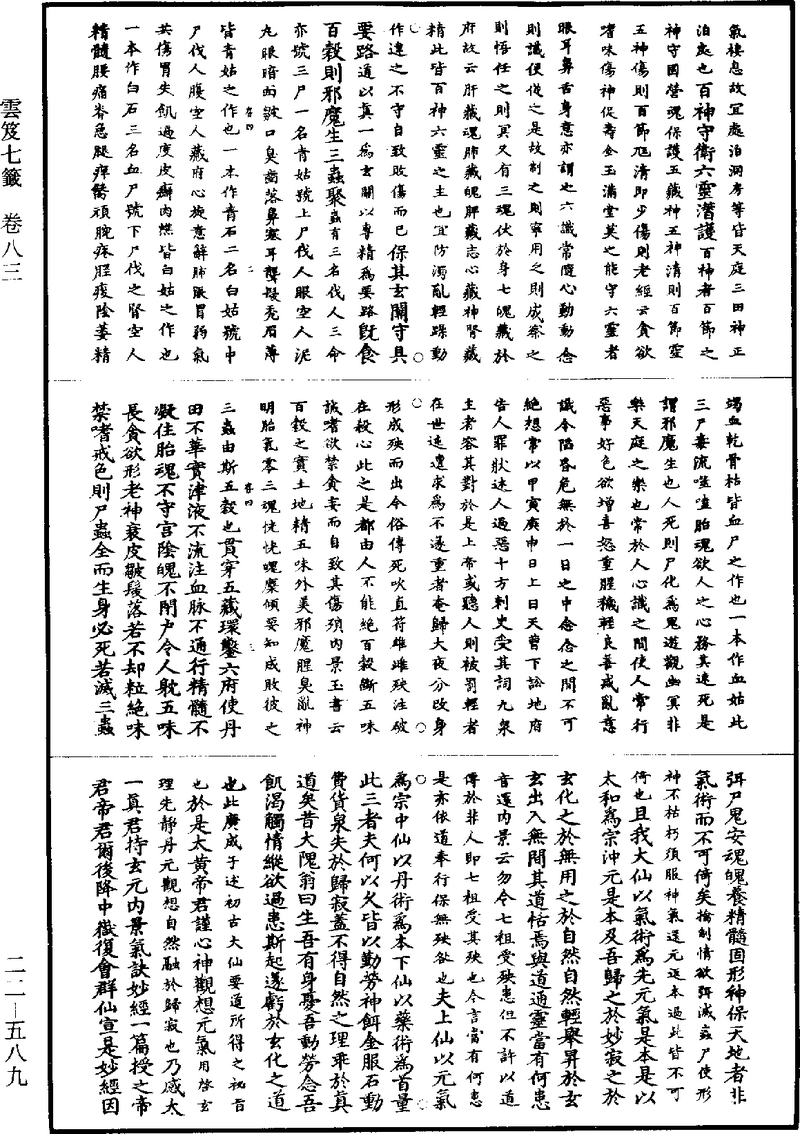 氣棲息故宜處泊洞房等皆天庭三田神正
泊處也百神守衛六靈潛護百神者百節之
神守國營魂保護五藏神五神清則百節靈
五神傷則百節尫清即少傷則老經云貪欲
嗜味傷神促壽金玉滿堂莫之能守六靈者
眼耳鼻舌身意亦謂之六識常隨心動動念
則識便從之是故制之則寧用之則成察之
則悟任之則冥又有三魂伏於身七魄藏於
府故云肝藏魂肺藏魄脾藏志心藏神腎藏
精此皆百神六靈之主也宜防濁亂輕躁動
作違之不守自致敗傷而已保其玄關守其
要路道以真一為玄關以專精為要路既食
百穀則邪魔生三蟲聚蟲有三名伐人三命
亦號三尸一名青姑號上尸伐人眼空人泥
丸眼暗面皺口臭齒落鼻塞耳聾髮禿眉薄
皆青姑之作也一本作青石二名白姑號中
尸伐人腹空人藏府心旋意解肺脹胃弱氣
共傷胃失飢過度皮癬肉燋皆白姑之作也
一本作白石三名血尸號下尸伐之腎空人
精髓腰痛脊急腿痹臀頑腕疼脛痠陰萎精
竭血乾骨枯皆血尸之作也一本作血姑此
三尸毒流噬嗑胎魂欲人之心務其速死是
謂邪魔生也人死則尸化為鬼遊觀幽冥非
樂天庭之樂也常於人心識之間使人常行
惡事好色欲增喜怒重腥穢輕良善惑亂意
識令陷昏危無於一日之中念念之間不可
絕想常以甲寅庚申日上日天曹下訟地府
告人罪狀述人過惡十方刺史受其詞九泉
主者容其對於是上帝或聽人則被罰輕者
在世迍邅求為不遂重者奄歸大夜分改身
形成殃而出今俗傳死吹直符雄雌殃注破
在殺心此之是都由人不能絕百穀斷五味
誡嗜欲禁貪妄而自致其傷殞內景玉書云
百穀之實土地精五味外美邪魔腥臭亂神
明胎氣零三魂恍恍魄糜傾妥知成敗彼之
三蟲由斯五穀也貫穿五藏環鑿六府使丹
田不華實津液不流注血脉不通行精髓不
凝住胎魂不守宮陰魄不閉戶令人躭五味
長貪欲形老神衰皮皺髮落若不却粒絕味
禁嗜戒色則尸蟲全而生身必死若滅三蟲
弭尸鬼安魂魄養精髓固形神保天地者非
氣術而不可倚矣擒制情欲弭滅蟲尸使形
神不枯朽須服神氣還元返本過此皆不可
倚也且我大仙以氣術為先元氣是本是以
太和為宗沖元是本及吾歸之於妙寂之於
玄化之於無用之於自然自然輕舉昇於玄
玄出入無間其道恬焉與道通靈當有何患
音還內景云勿令七祖受殃患但不許以道
傳於非人即七祖受其殃也今言當有何患
是亦依道奉行保無殃咎也夫上仙以元氣
為宗中仙以丹術為本下仙以藥術為首量
此三者夫何以久皆以勤勞神餌金服石動
費貨泉失於歸寂蓋不得自然之理乖於真
道矣昔大隗翁曰生吾有身憂吾動勞念吾
飢渴觸情縱欲過患斯起遂虧於玄化之道
也此廣成子述初古大仙要道所得之祕旨
也於是太黃帝君謹心神觀想元氣用啓玄
理先靜丹元觀想自然融於歸寂也乃感太
一真君持玄元內景氣訣妙經一篇授之帝
君帝君爾後降中嶽復會群仙宣是妙經因
雲笈七籤　卷八三
二二—五八九